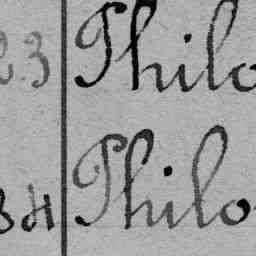 23 Philo
34 Philo